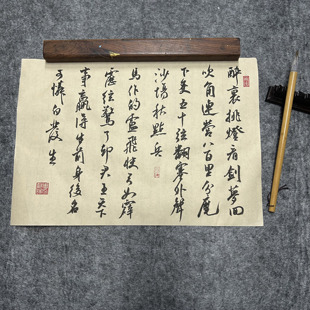 醉裏挑燈看劍夢回
吹角連營八百里分麾
下炙五十絃翻塞外聲
沙場秋點兵
馬作的盧飛快弓如霹
靂絃驚了卻君王天下
事贏得生前身後名
可憐白髮生